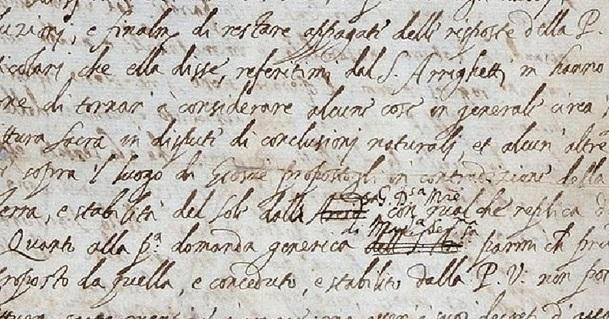 uzioni, e finalm.e di restare appagati delle risposte della P.
ticolari, che ella disse, referitimi dal S. Arrighetti, m'hanno
one di tornar' à considerare alcune cose in generale circa
ttura Sacra in dispute di conclusioni naturali, et alcun'altre
sopra 'l luogo di Giosuè propostogli in contradizione della
erra, e stabilità del Sole dalla G. D.sa M.re con qualche replica
Quanto alla p.a domanda generica di Mad.a Ser.ma parmi ch
roposto da quella, e conceduto, e stabilito dalla P. V. non po